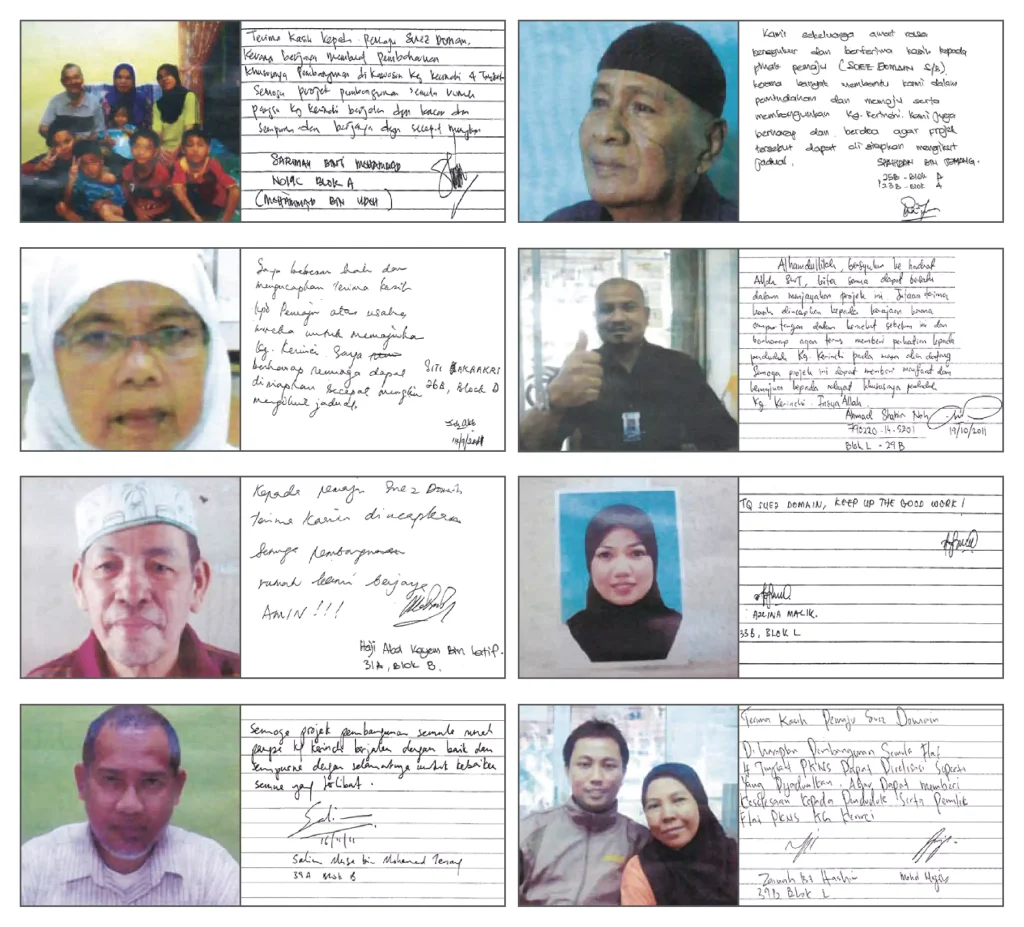 Terima Kasih Kepada Pemaju Suez Domain.
Kerana berjaya membuat pembaharuan
khususnya Pembangunan di Kawasan Kg Kerinchi 4 Tingkat
Semoga projek pembangunan semula rumah
pangsa Kg Kerinchi berjalan dgn lancar dan
sempurna dan berjaya dgn secepat mungkin
SARIMAH BINTI MUHAMMAD
NO19C BLOK A
(MUHAMMAD BIN UDOH)
Kami sekeluarga amat rasa
bersyukur dan berterima kasih kepada
pihak pemaju (SUEZ DOMAIN S/B)
kerana banyak membantu kami dalam
pemindahan dan memaju serta
membangunkan Kg. Kerinchi. Kami juga
berharap dan berdoa agar projek
tersebut dapat di siapkan mengikut
jadual.
BIN
25B - Blok A
23B - Blok A
Saya berbesar hati dan
mengucapkan terima kasih
kpd Pemaju atas usaha
mereka untuk memajukan
Kg. Kerinci. Saya
berharap semoga dapat
disiapkan secepat mungkin
mengikut jadual.
SITI
26B, Block D
Alhamdulillah, bersyukur ke hadrat
Allah SWT, kita semua dapat
dalam menjayakan projek ini. Jutaan terima
kasih diucapkan kepada kerajaan kerana
campur tangan dalam kemelut sebelum ini dan
berharap agar terus memberi perhatian kepada
penduduk Kg. Kerinchi pada masa akan datang
Semoga projek ini dapat memberi manfaat dan
kemajuan kepada rakyat khususnya penduduk
Kg. Kerinchi. Insya Allah.
Ahmad Noh
790220-14-5201
19/10/2011
Blok L - 29B
Kepada pemaju Suez Domain
terima Kasih diucapkan
Semoga pembangunan
rumah kami berjaya
AMIN!!!
Haji Abd Kayom Bin Latif.
31A, Blok B.
TQ SUEZ DOMAIN, KEEP UP THE GOOD WORK!
AZLINA MALIK.
33B, BLOK L
Semoga projek pembangunan semula rumah
pangsa Kg Kerinchi berjalan dengan baik dan
sempurna dengan selamatnya untuk kebaikan
semua yang terlibat.
16/11/11
Salim bin Mohamed
39A Blok B
Terima Kasih Pemaju Suez Domain
Diharapkan Pembangunan Semula Flat
4 Tingkat PKNS Dapat Direlisasi Seperti
Yang Dijadualkan. Agar Dapat memberi
Keselesaan Kepada Penduduk Serta Pemilik
Flat PKNS Kg Kerinci
Bt Hashim
Mohd
39B Blok L